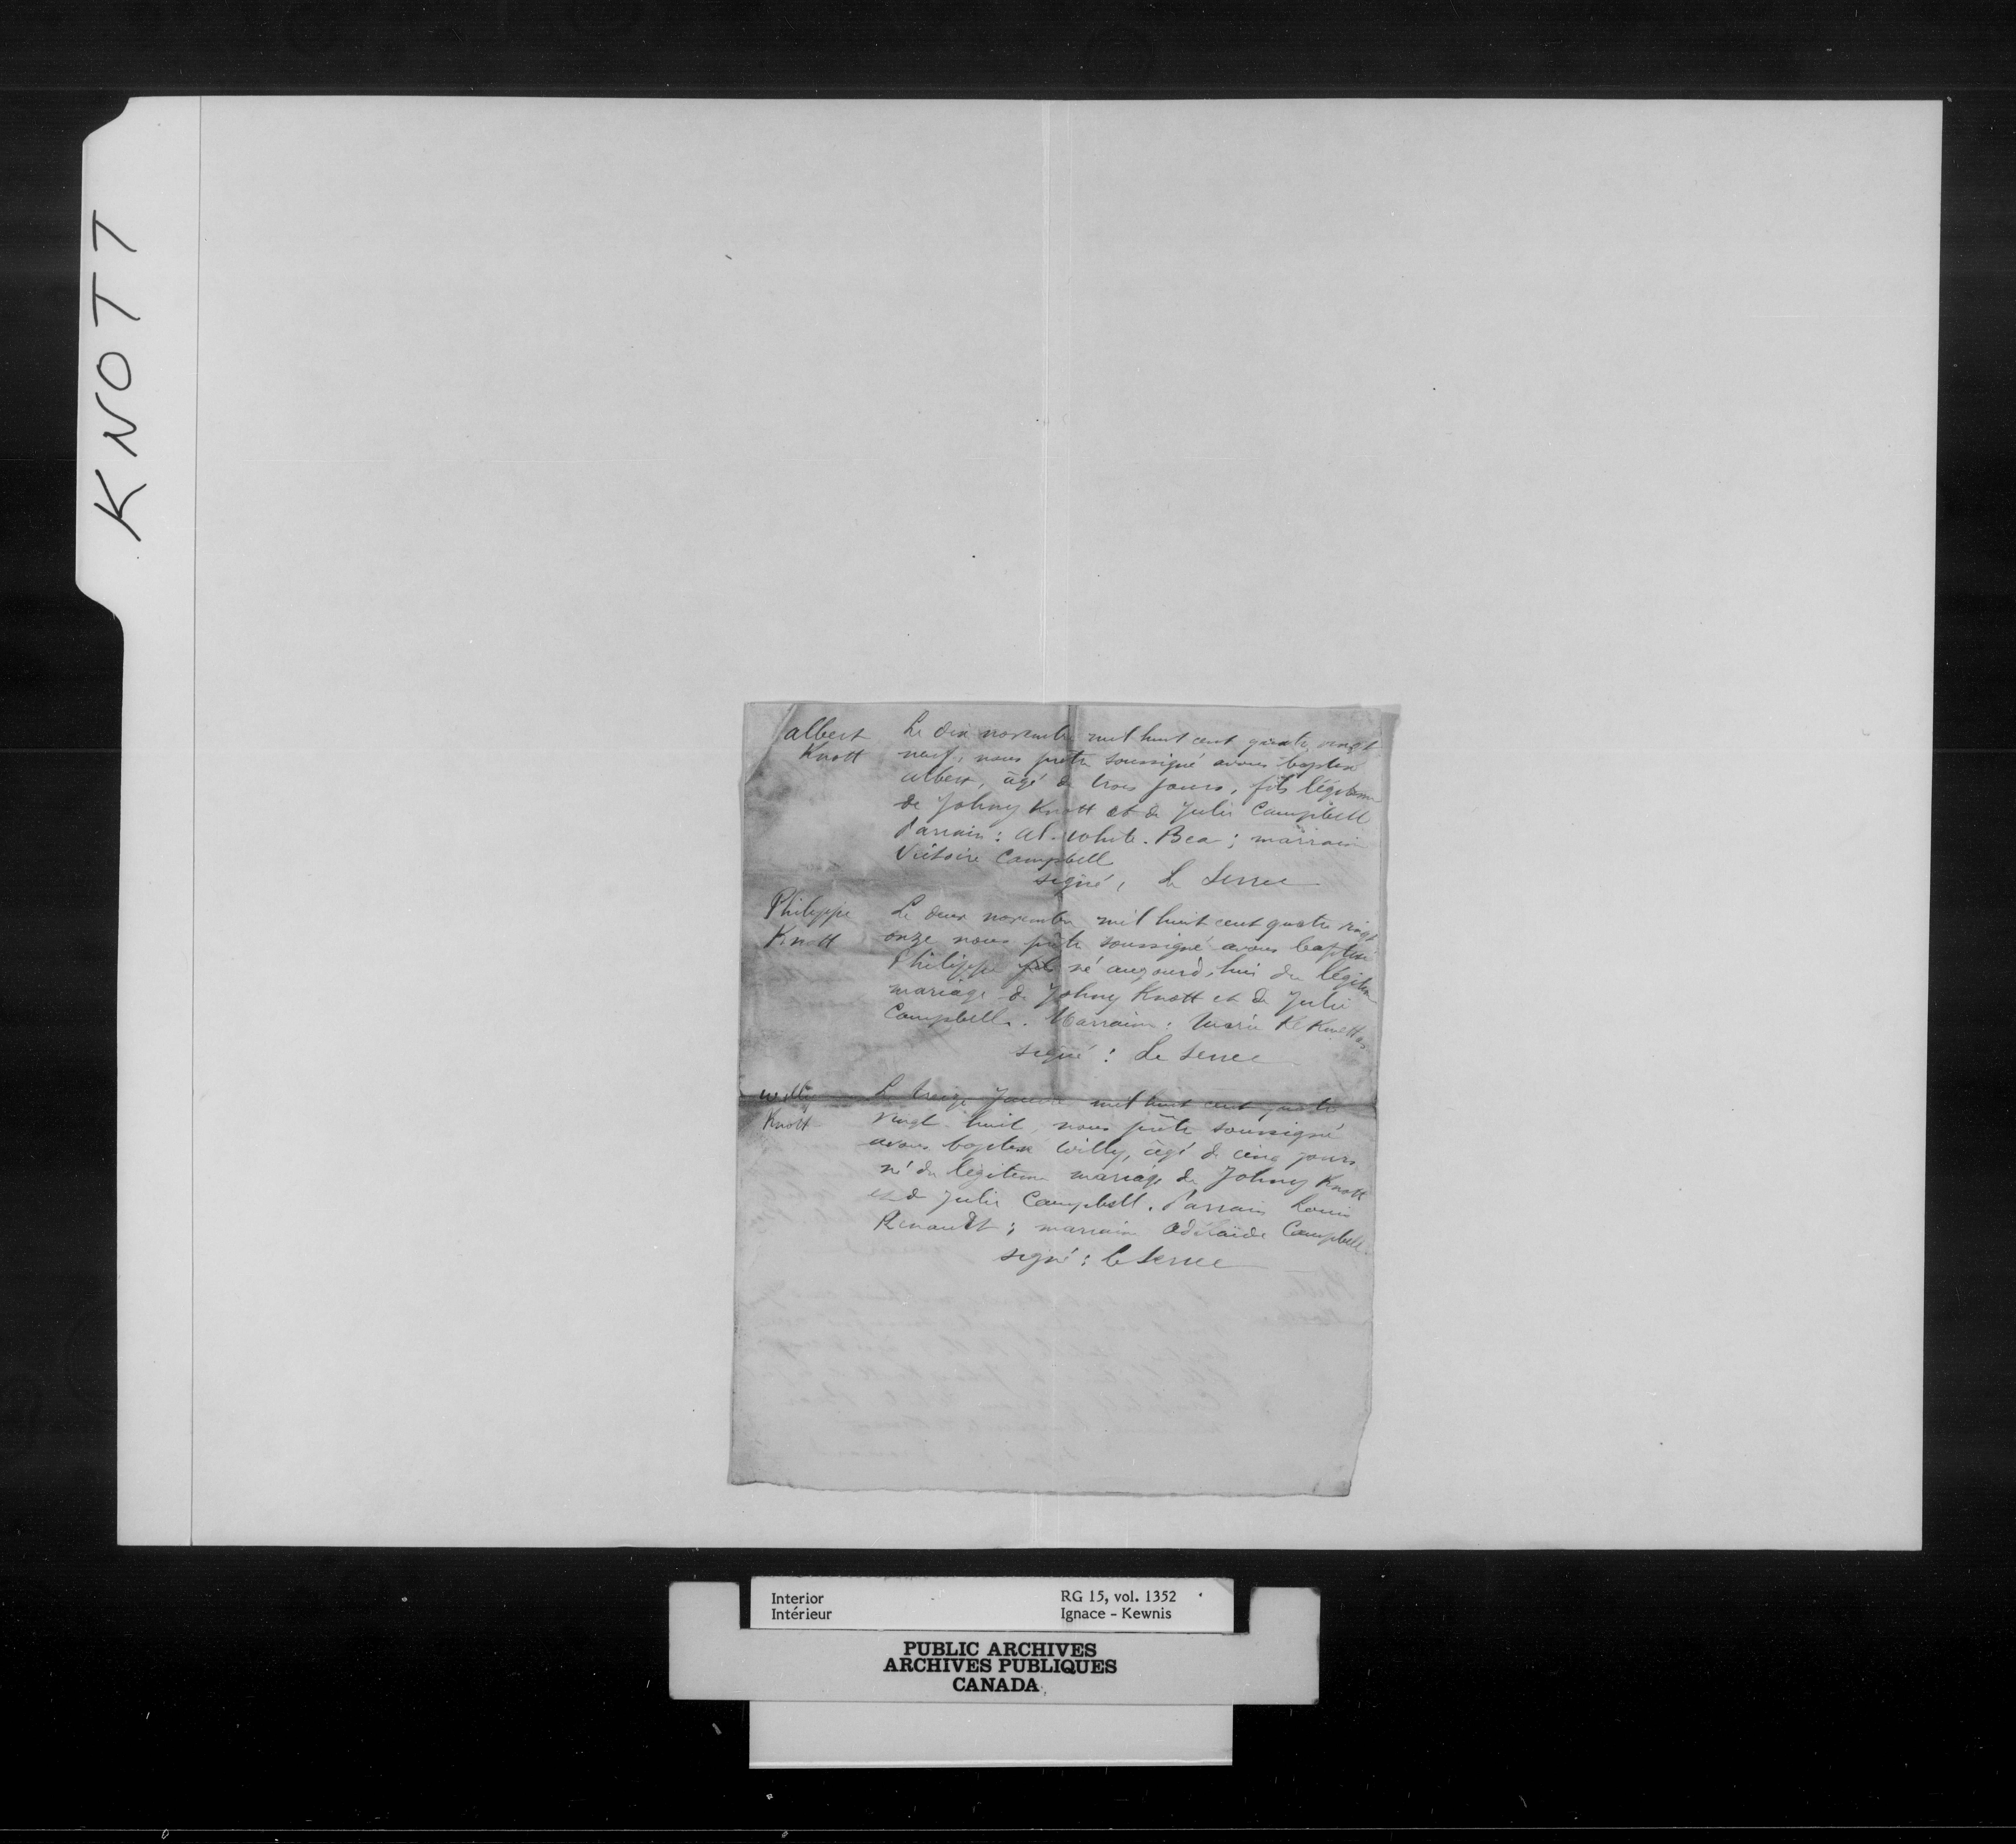 KNOTT
Albert Knott
Le dix novembre mil huit cent quatre vingt
neuf, nous prêtre soussigné avons baptisé
Albert, âgé de trois jours, fils légitime
de Johny Knott et de Julie Campbell
Parrain: Al. White. Bea; marraine
Victoire Campbell
signé, Le Serrec
Philippe Knott
Le deux novembre mil huit cent quatre vingt
onze nous prêtre soussigné avons baptisé
Philippe né aujourd'hui du légitime
mariage de Johny Knott et de Julie
Campbell. Marraine: Marie
signé: Le Serrec
Willy Knott
Le treize mil huit cent quatre
vingt huit, nous prêtre soussigné
avons baptisé Willy, âgé de cinq jours
né du légitime mariage de Johny Knott
et de Julie Campbell. Parrain Louis
Renault; marraine Adélaïde Campbell.
signé: Le Serrec
Interior
Intérieur
RG 15, vol. 1352
Ignace - Kewnis
PUBLIC ARCHIVES
ARCHIVES PUBLIQUES
CANADA